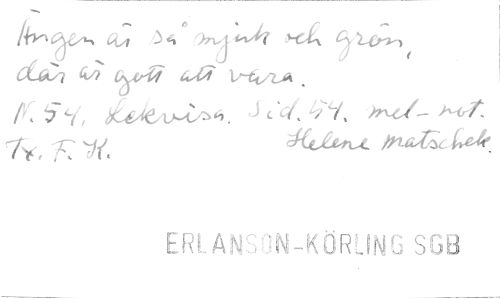 Ängen är så mjuk och grön,
där är gott att vara.
N. 54. Lekvisa. Sid. 54. mel-not.
Tx. F. K. Helene Matschek.
ERLANSON-KÖRLING SGB